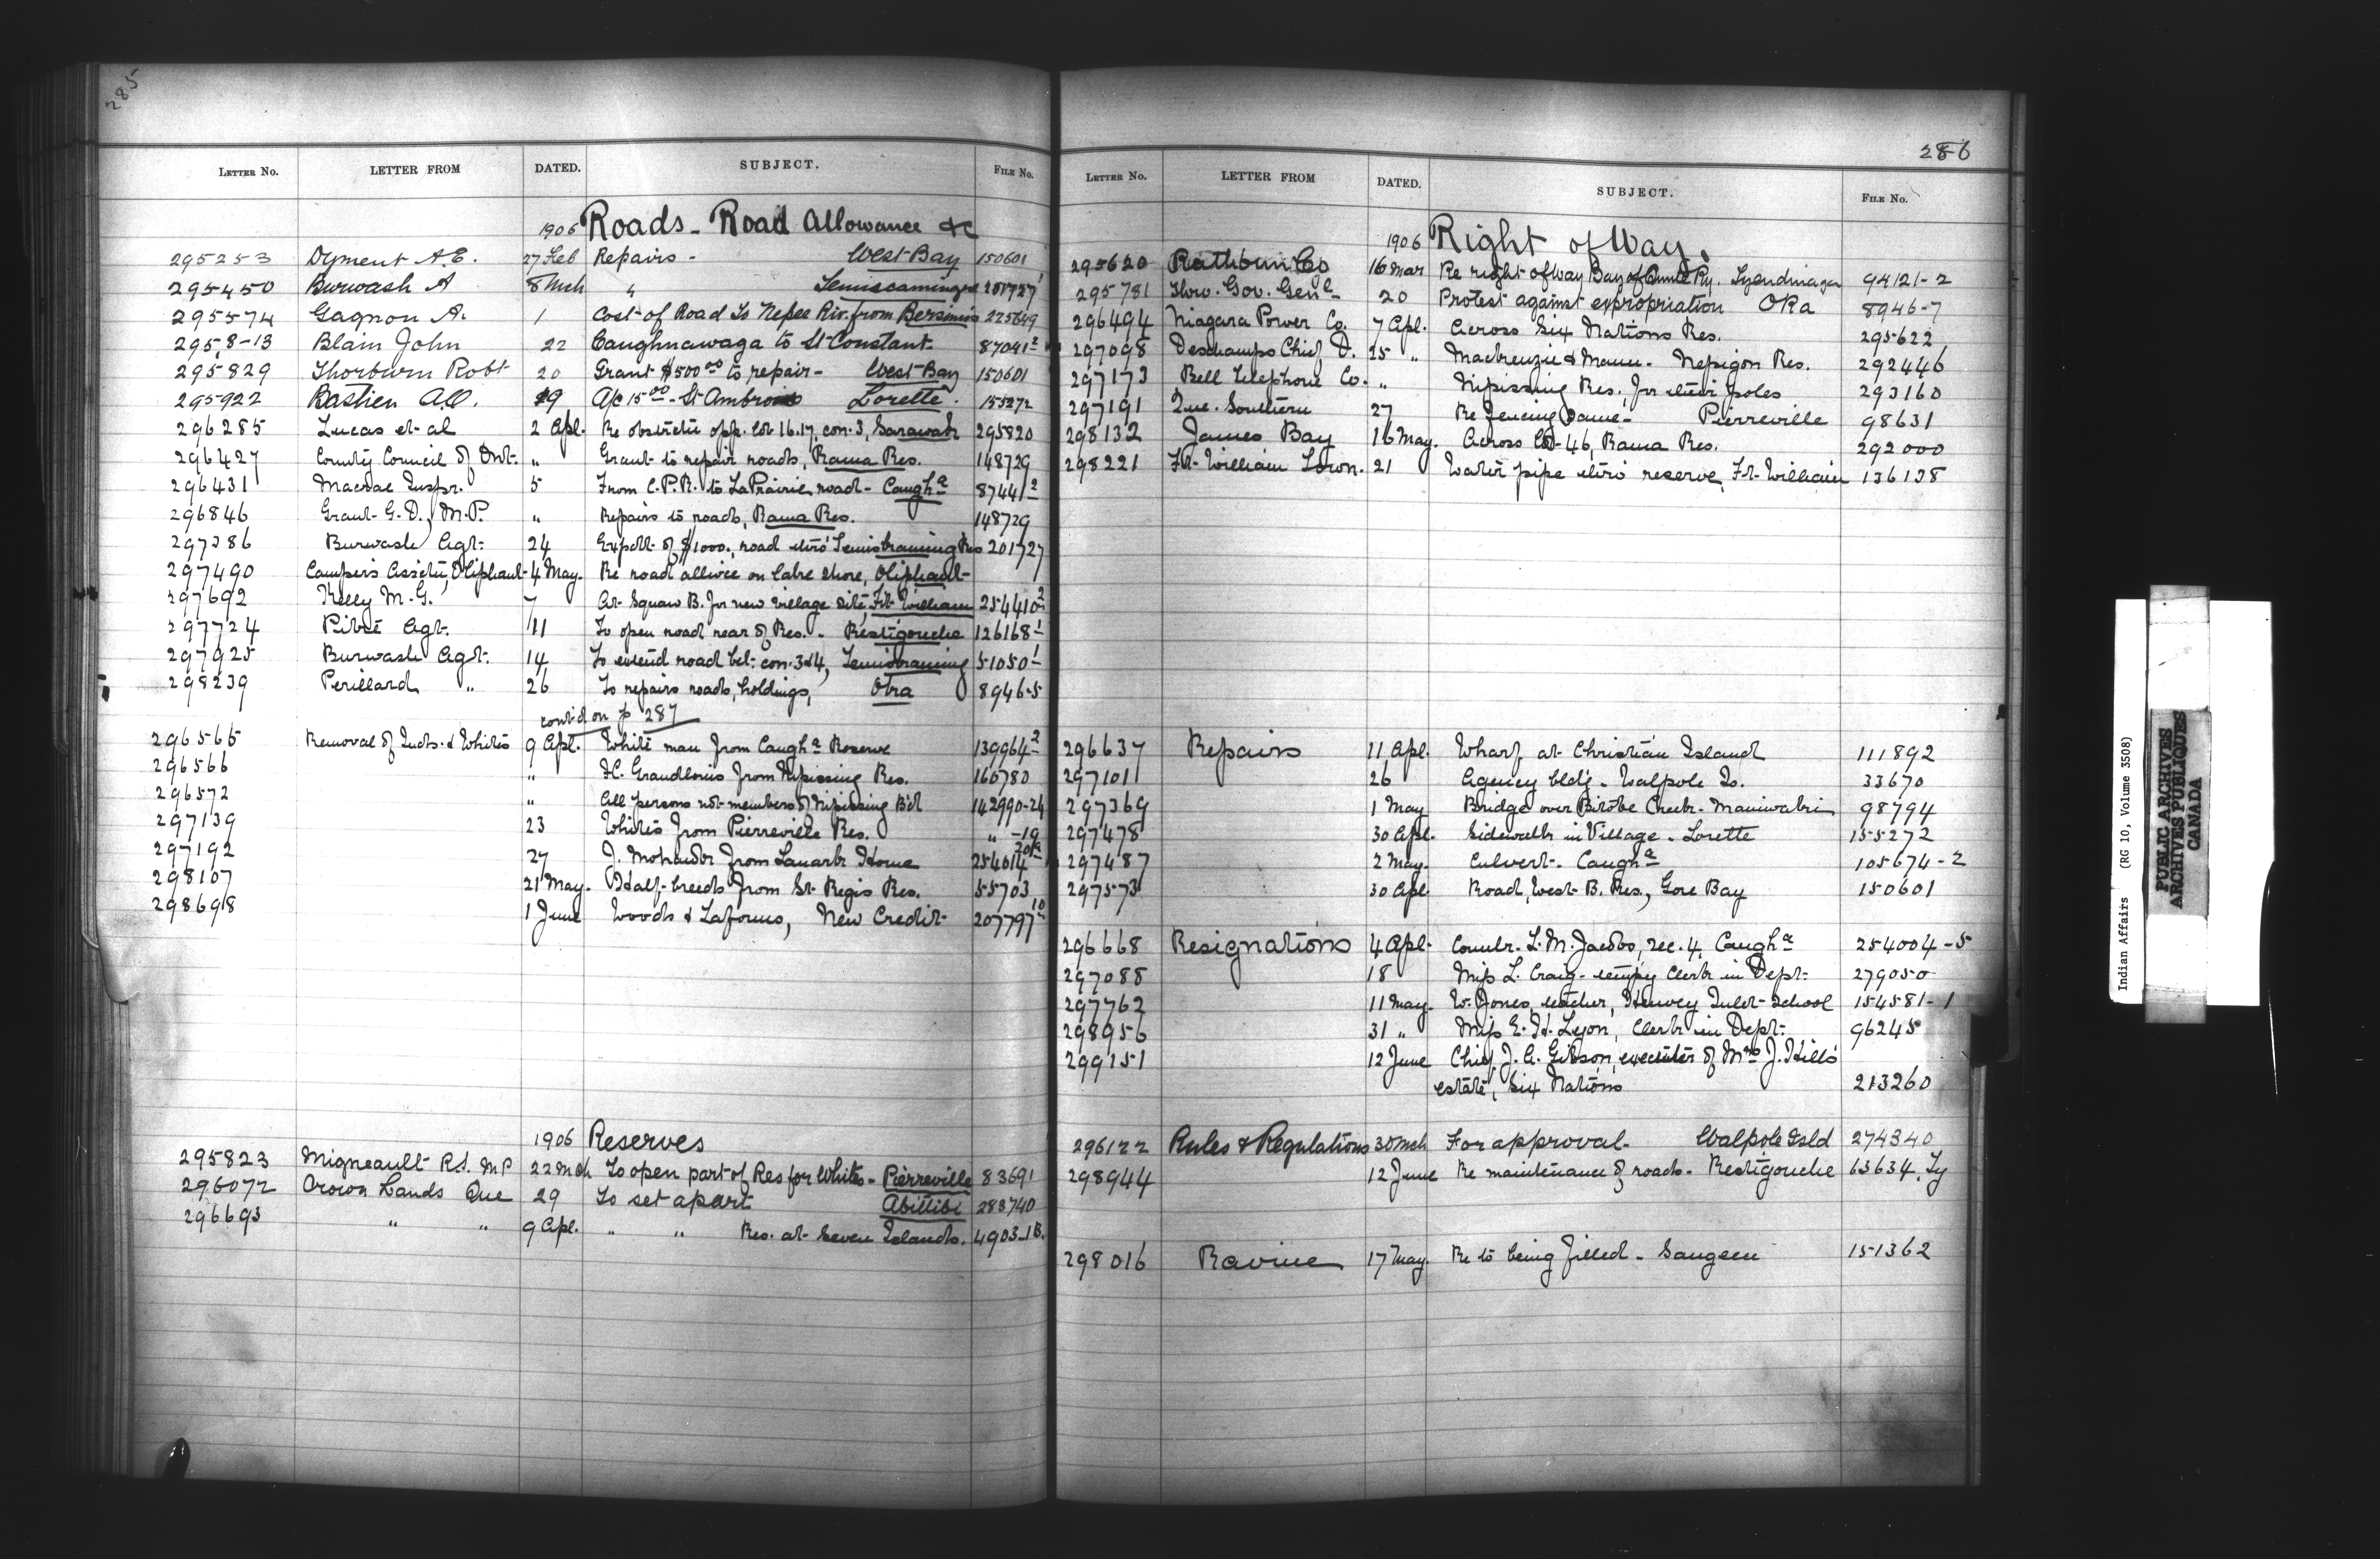 285
LETTER NO. LETTER FROM DATED. SUBJECT. FILE NO.
1906 Roads - Road Allowance &c
295253 Dyment A.E. 27 Feb Repairs - West Bay 150601
295450 Burwash A 8 Mch " Temiscamingue 201727
295574 Gagnon A. 1 Cost of Road to Nepee Riv. from Bersimis 225649
295813 Blain John 22 Caughnawaga to St Constant 87041-2
295829 Thorburn Robt 20 Grant $500.00 to repair - West Bay 150601
295922 Bastien A.O. 29 A/c 15.00 - St Ambroise Lorette. 155272
296285 Lucas et al 2 Apl. Re obstructn opp. lot 16.17, con. 3, Sarawak 295820
296427 County Council of Ont. " Grant to repair roads, Rama Res. 148729
296431 Macrae Inspr. 5 From C.P.R. to LaPrairie road - Caugha 87441-2
296846 Grant G.D., M.P. " Repairs to roads, Rama Res. 148729
297286 Burwash Agt. 24 Expdt. of $1000. road thro' Temiskaming Res 201727
297490 Campers Assctn, Oliphant 4 May. Re road allwce on lake shore, Oliphant
297692 Kelly M.G. 7 At Squaw B. for new village site, Ft. William 254410-2
297724 Pitre Agt. 11 To open road rear of Res. - Restigouche 126168-1
297925 Burwash Agt. 14 To extend road bet. con. 3 & 4, Temiskaming 51050-1
298239 Perillard " 26 To repairs roads, holdings, Oka 8946-5
cont'd on p 287
296565 Removal of Inds. & Whites 9 Apl. White man from Caugha Reserve 139964-2
296566 " H. Grandlouis from Nipissing Res. 166780
296572 " All persons not members of Nipissing B'd 142990-24
297139 23 Whites from Pierreville Res. " -19
297192 27 J. Mohawk from Lanark Home 254014-20A
298107 21 May. Half-breeds from St. Regis Res. 55703
298698 1 June Woods & Laforms, New Credit 207797-10
1906 Reserves
295823 Migneault R.J. M P 22 Mch To open part of Res for Whites - Pierreville 83691
296072 Crown Lands Que 29 To set apart Abittibi 283740
296693 " " 9 Apl. " " Res. at Seven Islands. 4903-1B.
286
LETTER NO. LETTER FROM DATED. SUBJECT. FILE NO.
1906 Right of Way.
295620 Rathbun Co 16 Mar Re right of way Bay of Quinte Ry. Tyendinaga 94121-2
295781 Thro. Gov. Genl - 20 Protest against expropriation OKa 8946-7
296494 Niagara Power Co. 7 Apl. Across Six Nations Res. 295622
297098 Deschamps Chief D. 25 " Mackenzie & Mann - Nepigon Res. 292446
297173 Bell Telephone Co. " Nipissing Res. for their poles 293160
297191 Que. Southern 27 Re fencing same - Pierreville 98631
298132 James Bay 16 May. Across lot 46, Rama Res. 292000
298221 Ft. William Town. 21 Water pipe thro' reserve, Ft. William 136138
296637 Repairs 11 Apl. Wharf at Christian Island 111892
297101 26 Agency bld'g - Walpole Is. 33670
297369 1 May Bridge over Bitobe Creek - Maniwaki 98794
297478 30 Apl. Sidewalk in Village - Lorette 155272
297487 2 May. Culvert - Caugha 105674-2
297573 30 Apl. Road, West B. Res., Gore Bay 150601
296668 Resignations 4 Apl. Counlr. L.M. Jacobs, sec. 4, Caugha 254004-5
297088 18 Miss L. Craig - tempy Clerk in Dept. 279050
297762 11 May. W. Jones, teacher, Henvey Inlet School 154581-1
298956 31 " Miss E.H. Lyon, Clerk in Dept. 96245
299151 12 June Chief J.A. Gibson, executor of Mrs J. Hill's
estate, Six Nations 213260
296122 Rules & Regulations 30 Mch For approval - Walpole Isld 274340
298944 12 June Re maintenance of roads - Restigouche 63634. Ty
298016 Ravine 17 May. Re to being filled - Saugeen 151362
Indian Affairs (RG 10, Volume 3508)
PUBLIC ARCHIVES
ARCHIVES PUBLIQUES
CANADA